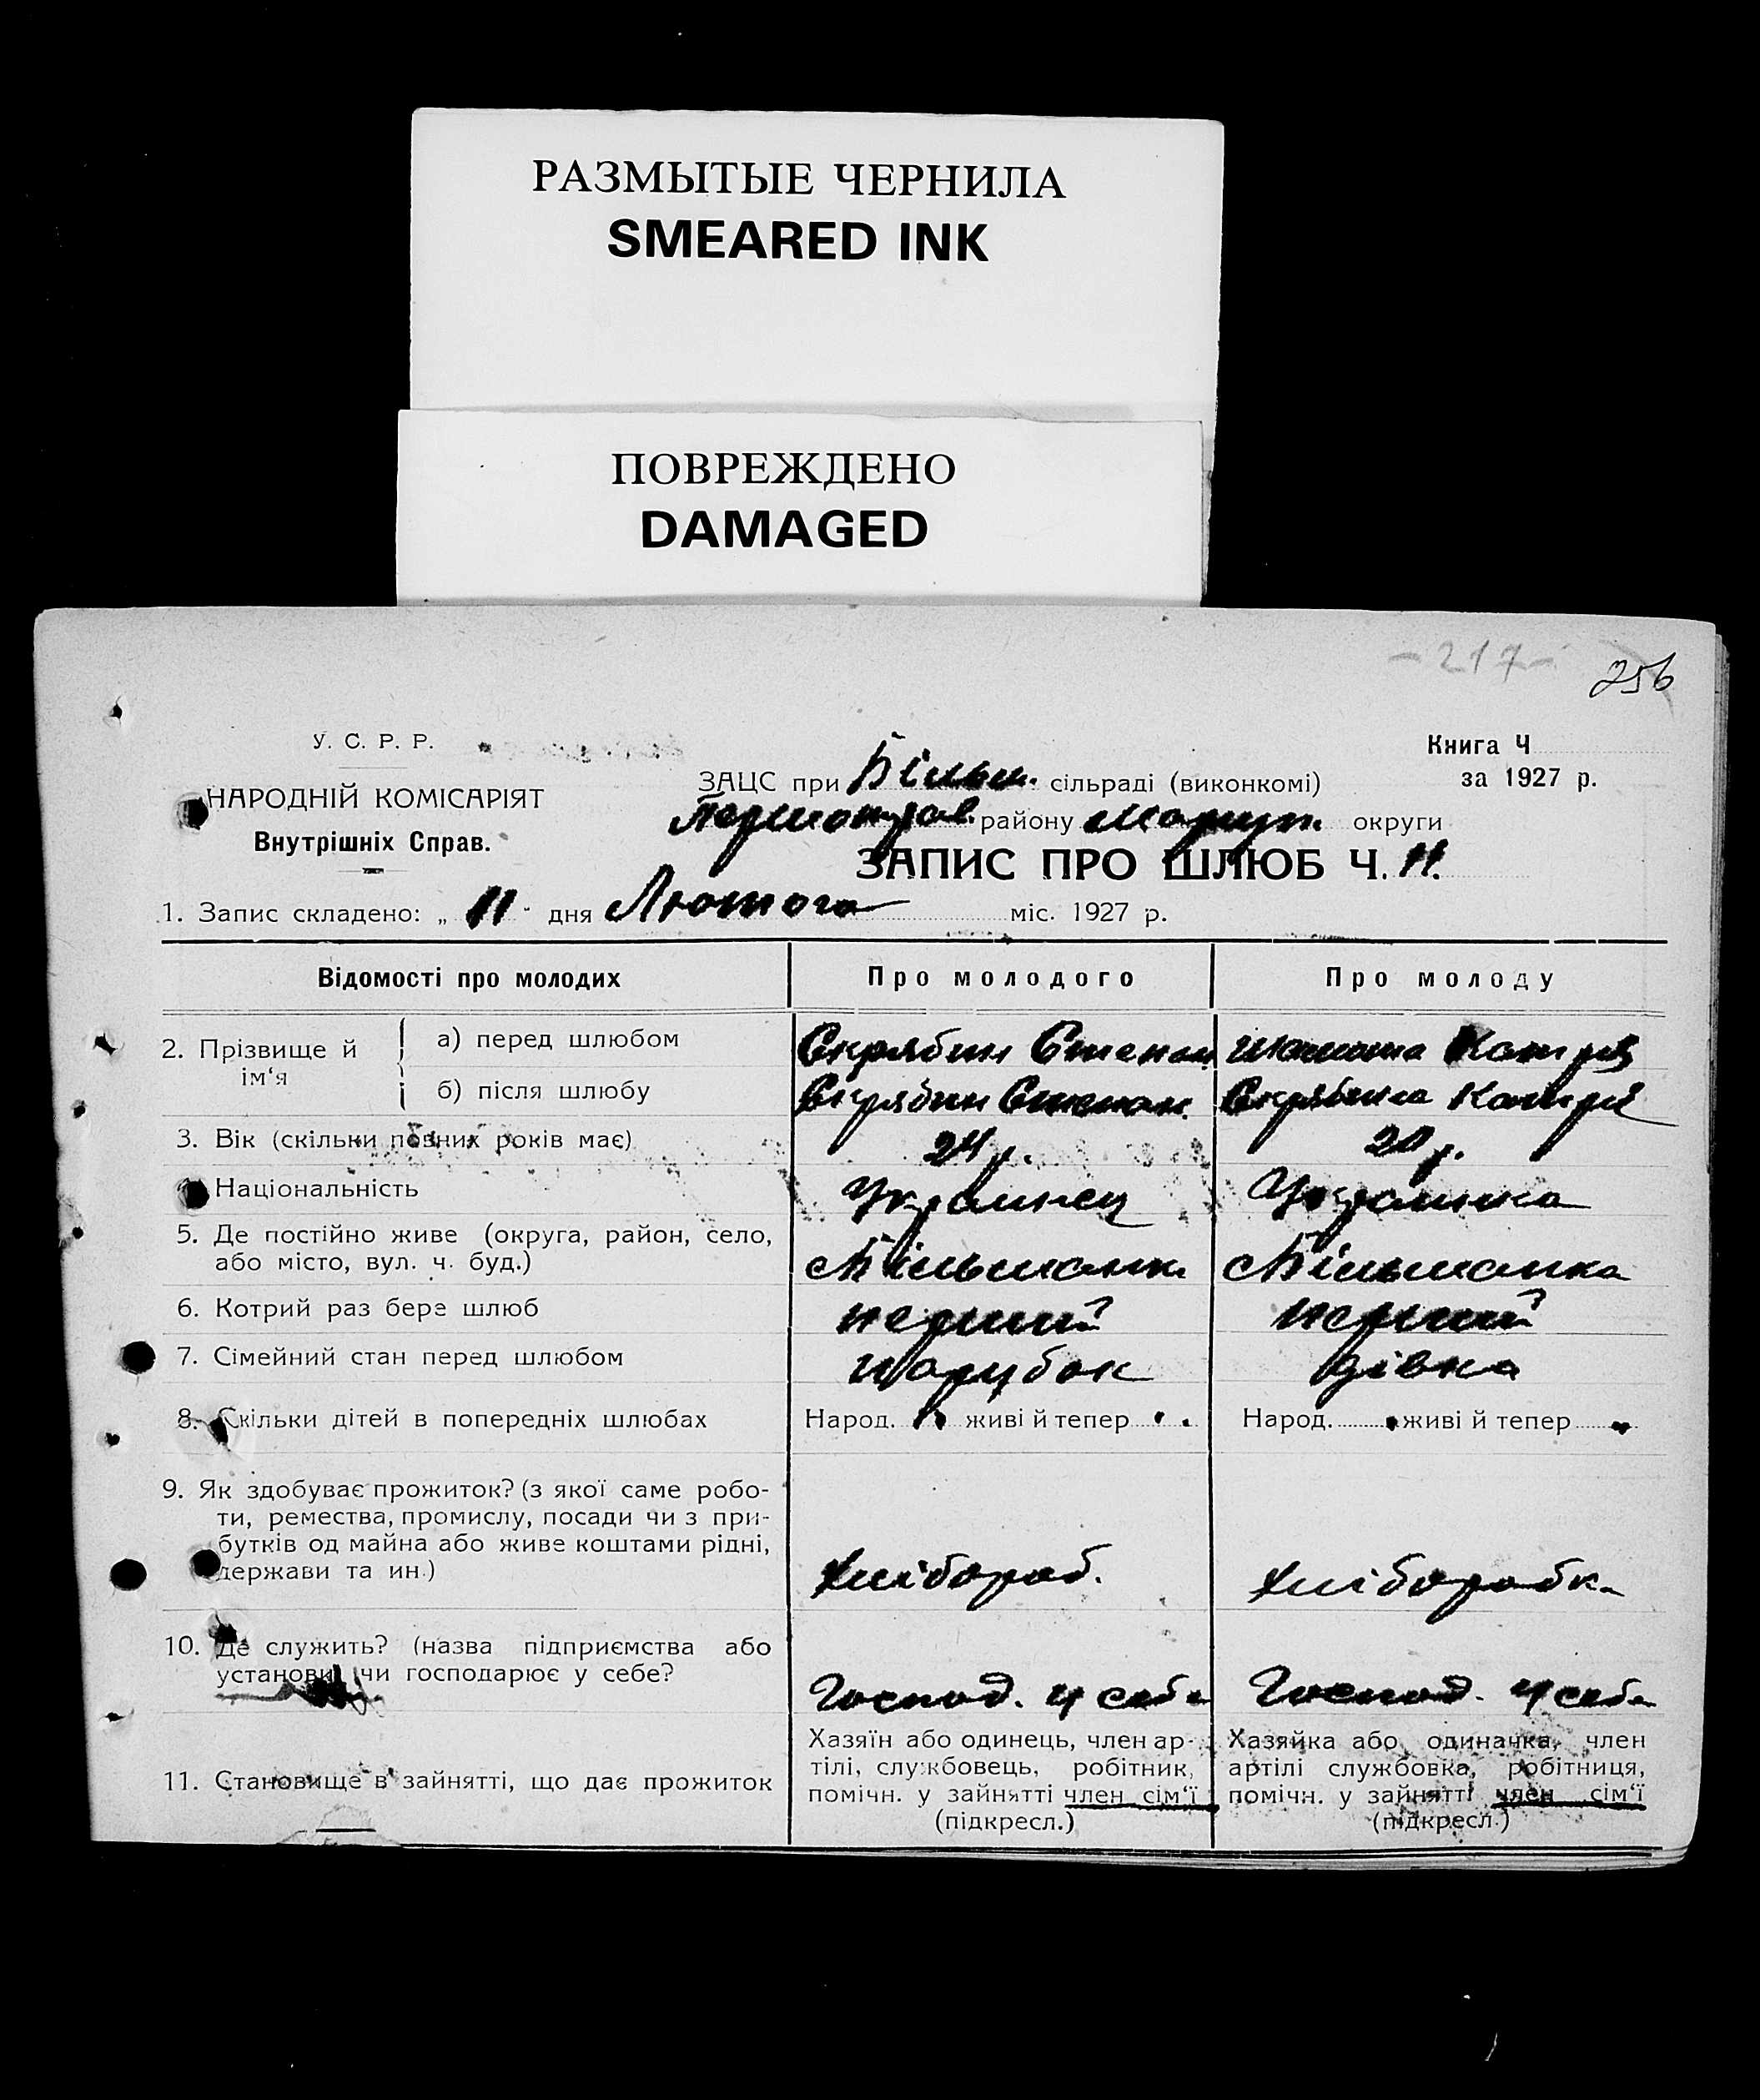 РАЗМЫТЫЕ ЧЕРНИЛА
SMEARED INK
ПОВРЕЖДЕНО
DAMAGED
-217-
256
У. С. Р. Р.
НАРОДНІЙ КОМІСАРІЯТ
Внутрішніх Справ.
ЗАЦС при Більм. сільраді (виконкомі)
району Маріуп. округи
Книга Ч
за 1927 р.
ЗАПИС ПРО ШЛЮБ Ч. 11.
1. Запис складено: „ 11 " дня Лютого міс. 1927 р.
Відомості про молодих
Про молодого
Про молоду
2. Прізвище й ім‘я
а) перед шлюбом
Скрябин Степан
Катря
б) після шлюбу
Скрябин Степан
Скрябина Катря
3. Вік (скільки повних років має)
24 р.
20 р.
Національність
Украинец
Украинка
5. Де постійно живе (округа, район, село,
або місто, вул. ч. буд.)
Більманка
Більманка
6. Котрий раз бере шлюб
перший
перший
7. Сімейний стан перед шлюбом
парубок
дівка
8. Скільки дітей в попередніх шлюбах
Народ. живі й тепер
Народ. живі й тепер
9. Як здобуває прожиток? (з якої саме робо-
ти, ремества, промислу, посади чи з при-
бутків од майна або живе коштами рідні,
держави та ин.)
Хлібороб.
Хлібороб­ка
10. Де служить? (назва підприємства або
установи чи господарює у себе?
Господ. у себе
Господ. у себе
11. Становище в зайнятті, що дає прожиток
Хазяїн або одинець, член ар-
тілі, службовець, робітник,
помічн. у зайнятті член сім‘ї
(підкресл.)
Хазяйка або одиначка, член
артілі службовка, робітниця,
помічн. у зайнятті член сім‘ї
(підкресл.)